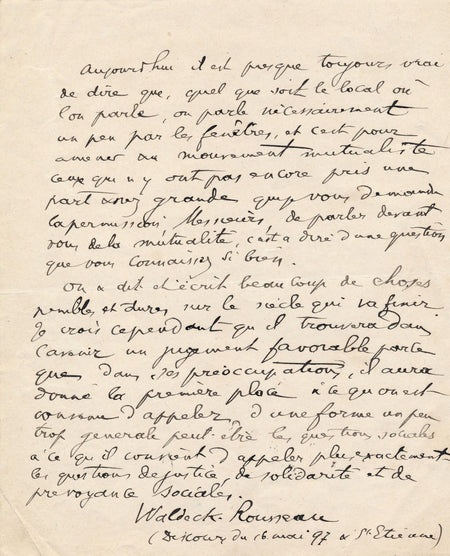 Aujourd'hui il est presque toujours vrai
de dire que, quel que soit le local où
l'on parle, on parle nécessairement
un peu par les fenêtres, et c'est pour
amener au mouvement mutualiste
ceux qui n'y ont pas encore pris une
part assez grande que je vous demande
la permission, Messieurs, de parler devant
vous de la mutualité, c'est à dire d'une question
que vous connaissez si bien.
On a dit et écrit beaucoup de choses
et dures sur le siècle qui va finir
Je crois cependant qu'il trouvera dans
l'avenir un jugement favorable parce
que dans ses préoccupations, il aura
donné la première place à ce qu'on est
convenu d'appeler, d'une forme un peu
trop generale peut-être les questions sociales
à ce qu'il convient d'appeler plus exactement
les questions de justice, de solidarité et de
prevoyance sociales.
Waldeck-Rousseau
(Discours du 16 mai 97 à St Etienne)